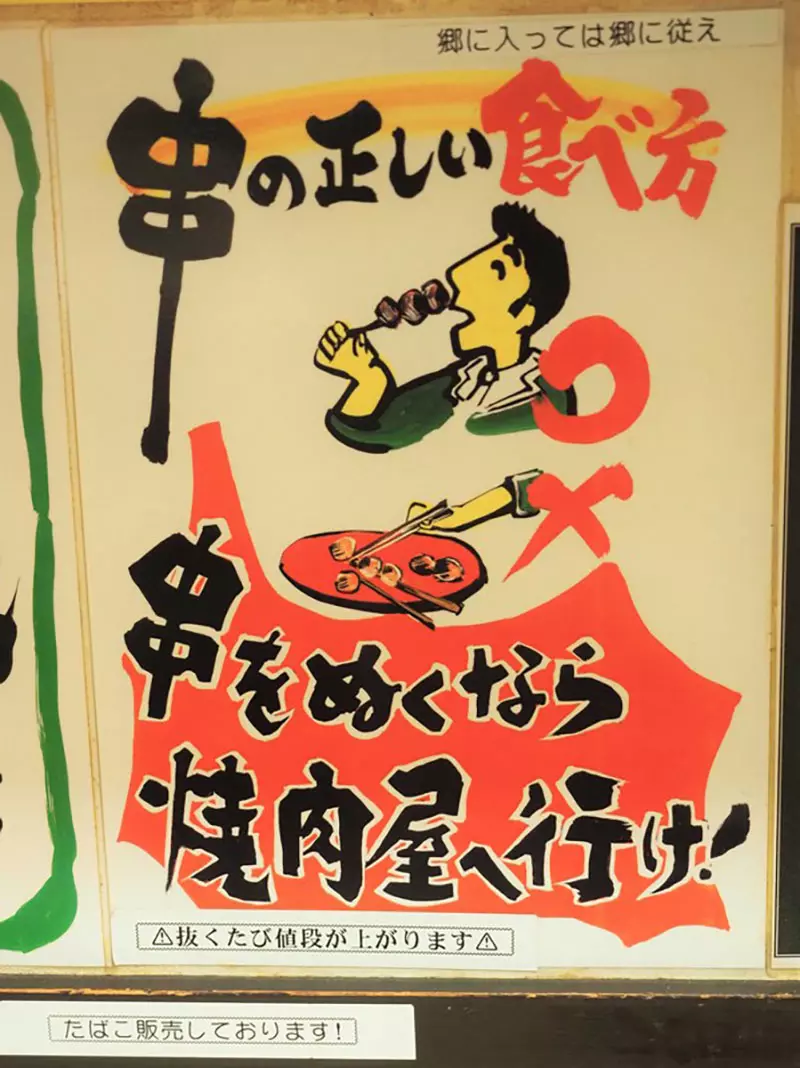 郷に入っては郷に従え
串の正しい食べ方
串をぬくなら
焼肉屋へ行け!
⚠抜くたび値段が上がります⚠
たばこ販売しております!